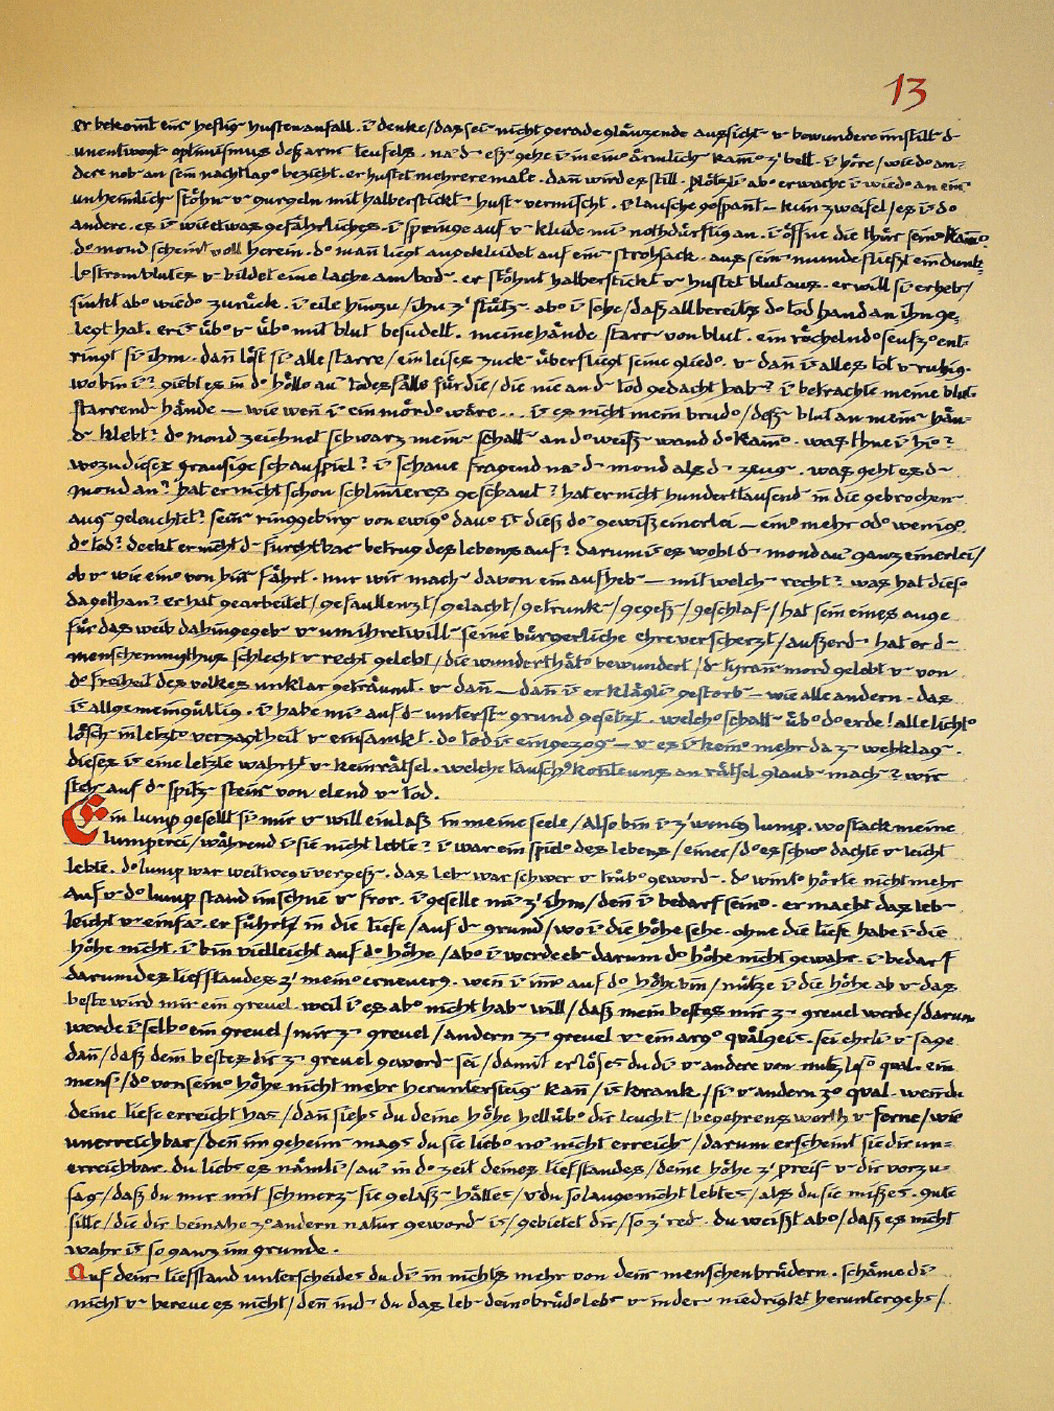 13
er bekom̄t ein~ heftig~ hustenanfall. i~ denke/das sei~ nicht gerade glänzende aussicht~ v~ bewundere im still~ d~
unentwegt~ optimismus deß arm~ teufels. na~ d~ eß~ gehe i~ in mein° ärmlich~ kam̄° z' bett. i~ höre/wie d° an=
dere neb~ an sein nachtlag° bezieht. er hustet mehrere male. dan̄ wird es still. plötzli~ ab° erwache i~ wied° an ein~
unheimlich~ stöhn~ v~ gurgeln mit halberstickt~ hust~ vermischt. i~ lausche gespan̄t — kein zweifel/es i~ d°
andere. es i~ wie etwas gefährliches. i~ springe auf v~ kleide mi~ nothdürftig an. i~ öffne die thür sein° kam̄°.
d° mond scheint voll herein. d° man̄ liegt angekleidet auf ein~ strohsack. aus sein~ munde fließt ein dunk=
l° strom blutes v~ bildet eine lache am bod~. er stöhnt halberstickt v~ hustet blut aus. er will si~ erheb~/
sinkt ab° wied° zurück. i~ eile hinzu/ihn z' stütz~. ab° i~ sehe/daß allbereits d° tod hand an ihn ge=
legt hat. er i~ üb° v~ üb° mit blut besudelt. meine hände starr~ von blut. ein röchelnd° seufz° ent=
ringt si~ ihm. dan̄ löst si~ alle starre/ein leises zuck~ überfliegt seine glied°. v~ dan̄ i~ alles tot v~ ruhig.
wo bin i~? giebt es in d° hölle au~ todesfälle für die/die nie an d~ tod gedacht hab~? i~ betrachte meine blut=
starrend~ hände — wie wen̄ i~ ein mörd° wäre... i~ es nicht mein brud°/deß~ blut an mein~ hän=
d~ klebt? d° mond zeichnet schwarz mein~ schatt~ an d° weiß~ wand d° kam̄°. was thue i~ hi°?
wozu dieses grausige schauspiel? i~ schaue fragend na~ d~ mond als d~ zeug~. was geht es d~
mond an? hat er nicht schon schlim̄eres geschaut? hat er nicht hunderttausend~ in die gebrochen~
aug~ geleuchtet? sein~ ringgebirg~ von ewig° dau° i~ dieß d° gewiß einerlei — ein° mehr od° wenig°.
d° tod? deckt er nicht d~ furchtbar~ betrug des lebens auf? darum i~ es wohl d~ mond au~ ganz einerlei/
ob v~ wie ein° von hin~ fährt. nur wir mach~ davon ein aufheb~ — mit welch~ recht? was hat dies°
da gethan? er hat gearbeitet/gefaullenzt/gelacht/getrunk~/gegeß~/geschlaf~/hat sein eines auge
für das weib dahingegeb~ v~ um ihretwill~ seine bürgerliche ehre verscherzt/außerd~ hat er d~
menschenmythus schlecht v~ recht gelebt/die wunderthät° bewundert/d~ tyran̄~mord gelobt v~ von
d° freiheit des volkes unklar geträumt. v~ dan̄ — dan̄ i~ er klägli~ gestorb~ — wie alle andern. das
i~ allgemeingültig. i~ habe mi~ auf d~ unterst~ grund gesetzt. welch° schatt~ üb° d° erde! alle licht°
lösch~ in letzt° verzagtheit v~ einsamkt. d° tod i~ eingezog~ — v~ es i~ kein° mehr da z~ wehklag~.
dieses i~ eine letzte wahrht v~ kein rätsel. welche täuschg kon̄te uns an rätsel glaub~ mach~? wir
steh~ auf d~ spitz~ stein~ von elend v~ tod.
Ein lump gesellt si~ mir v~ will einlaß in meine seele/Also bin i~ z' wenig lump. wo stack meine
lumperei/während i~ sie nicht lebte? i~ war ein spiel° des lebens/einer/d° es schw° dachte v~ leicht
lebte. d° lump war weit weg v~ vergeß~. das leb~ war schwer v~ trüb° geword~. d° wint° hörte nicht mehr
auf v~ d° lump stand im schnee v~ fror. i~ geselle mi~ z' ihm/den̄ i~ bedarf sein°. er macht das leb~
leicht v~ einfa~. er führt/in die tiefe/auf d~ grund/wo i~ die höhe sehe. ohne die tiefe habe i~ die
höhe nicht. i~ bin vielleicht auf d° höhe/ab° i~ werde eb~ darum d° höhe nicht gewahr. i~ bedarf
darum des tiefstandes z' mein° erneuerg. wen̄ i~ im̄° auf d° höhe bin/nütze i~ die höhe ab v~ das
beste wird mir ein greuel. weil i~ es ab° nicht hab~ will/daß mein bestes mir z~ greuel werde/darum
werde i~ selb° ein greuel/mir z~ greuel/andern z~ greuel v~ ein arg° quälgeist. sei ehrli~ v~ sage
dan̄/daß dein bestes dir z~ greuel geword~ sei/damit erlöses du di~ v~ andere von nutzlos° qual. ein
mens~/d° von sein° höhe nicht mehr heruntersteig~ kan̄/i~ krank/si~ v~ andern z° qual. wen̄ du
deine tiefe erreicht has~/dan̄ siehs~ du deine höhe hell üb° dir leucht~/begehrenswerth v~ ferne/wie
unerreichbar/den̄ im geheim~ mags~ du sie lieb° no~ nicht erreich~/darum erscheint sie dir un=
erreichbar. du liebs~ es nämli~/au~ in d° zeit deines tiefstandes/deine höhe z' preis~ v~ dir vorzu=
sag~/daß du nur mit schmerz~ sie gelaß~ hättes~/v~ du so lange nicht lebtes~/als du sie mißes~. gute
sitte/die dir beinahe z° andern natur geword~ i~/gebietet dir/so z' red~. du weißt ab°/daß es nicht
wahr i~ so ganz im grunde.
Auf dein~ tiefstand unterscheides~ du di~ in nichts mehr von dein~ menschenbrüdern. schäme di~
nicht v~ bereue es nicht/den̄ ind~ du das leb~ dein° brüd° lebs~ v~ in der~ niedrigkt heruntergehs~/